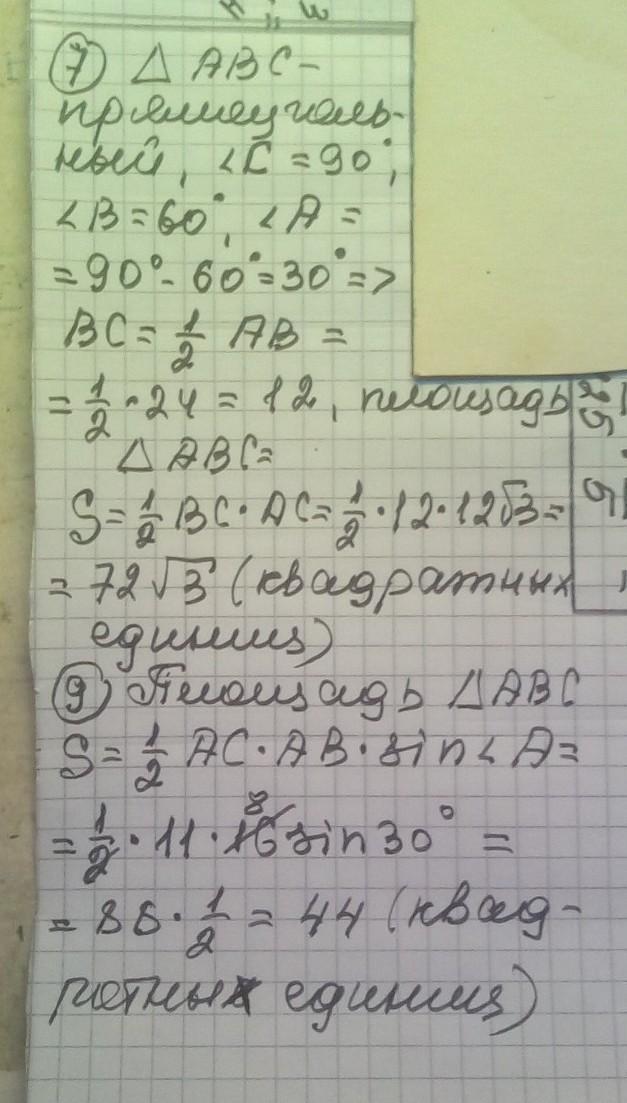 ⑦ △ ABC -
прямоуголь-
ный, ∠C = 90°,
∠B = 60°, ∠A =
= 90° - 60° = 30° =>
BC = 1/2 AB =
= 1/2 · 24 = 12, площадь
△ ABC =
S = 1/2 BC · AC = 1/2 · 12 · 12√3 =
= 72√3 (квадратных
единиц)
⑨ Площадь △ABC
S = 1/2 AC · AB · sin∠A =
= 1/2 · 11 · 16 8 sin 30° =
= 88 · 1/2 = 44 (квад-
ратных единиц)
25